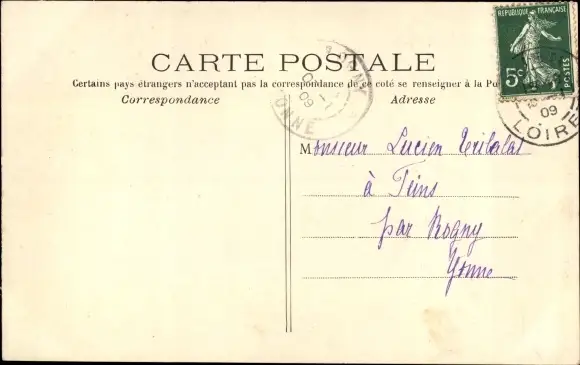 REPUBLIQUE FRANÇAISE
5c
POSTES
CARTE POSTALE
Certains pays étrangers n'acceptant pas la correspondance de ce coté se renseigner à la Po
Correspondance
Adresse
09
LOIRE
09
YONNE
Monsieur Lucien Tribalat
à
par Rogny
Yonne